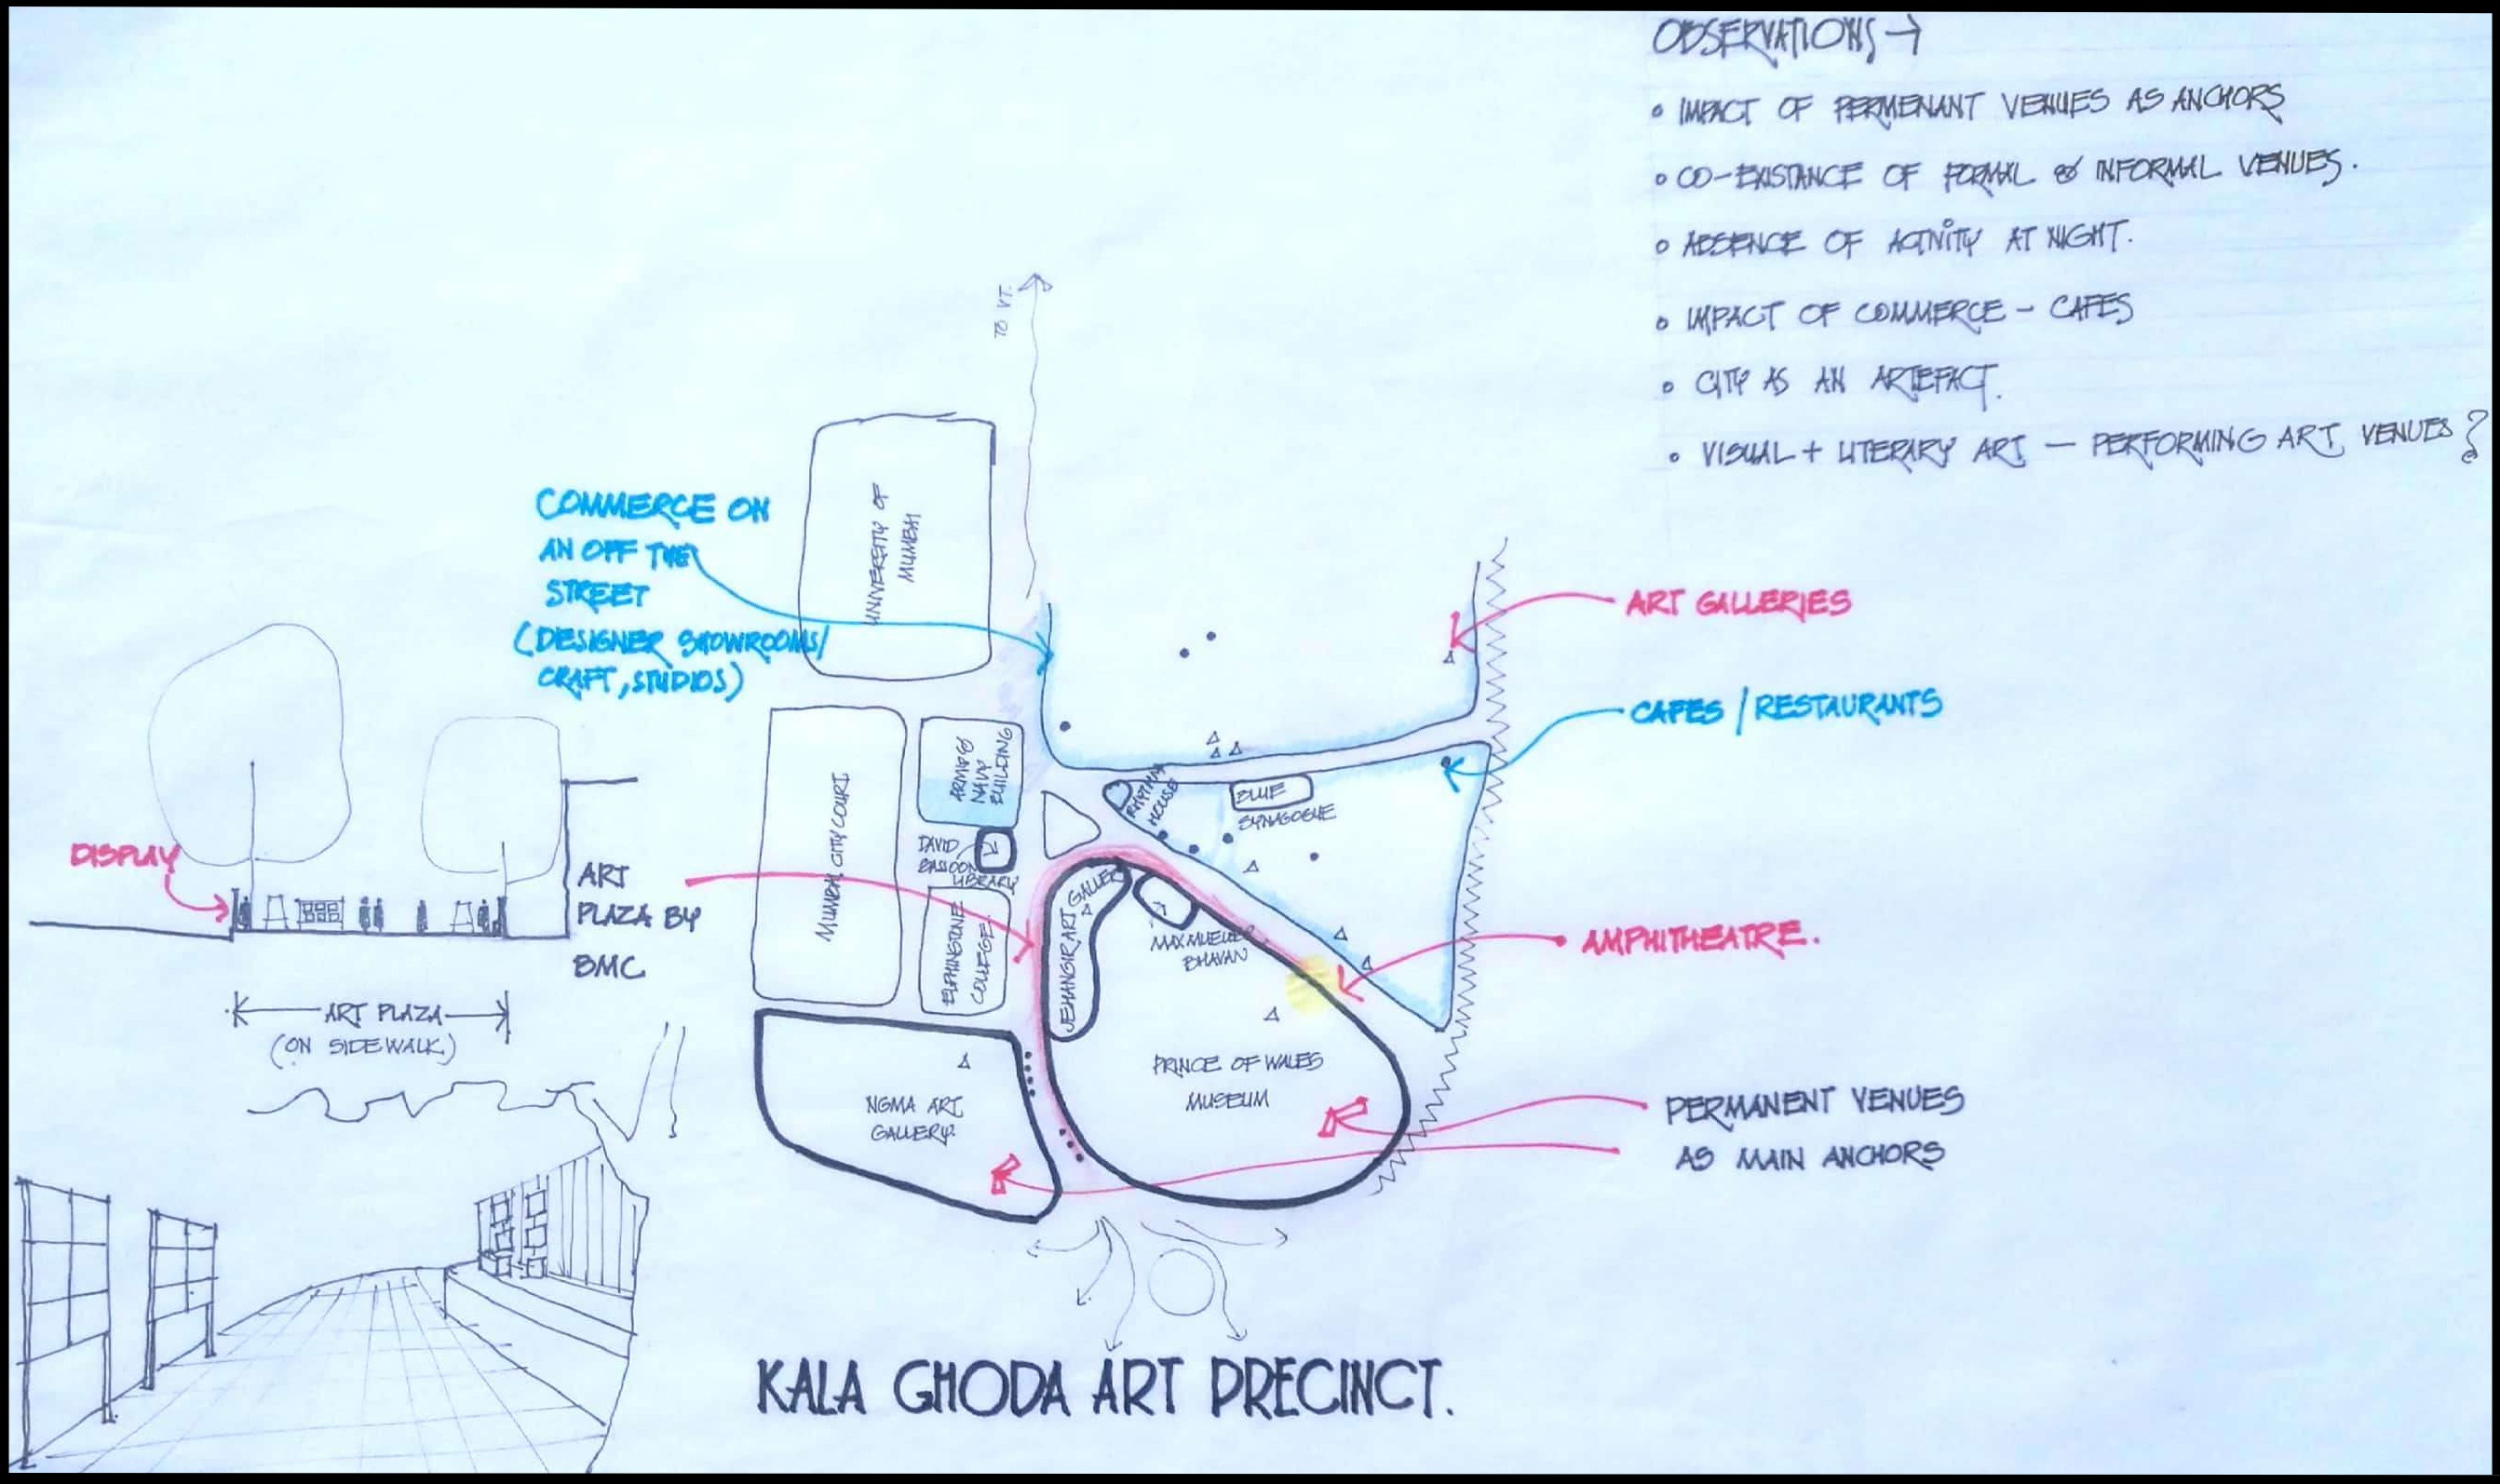 OBSERVATIONS →
• IMPACT OF PERMENANT VENUES AS ANCHORS
• CO-EXISTANCE OF FORMAL & INFORMAL VENUES.
• ABSENCE OF ACTIVITY AT NIGHT.
• IMPACT OF COMMERCE - CAFES
• CITY AS AN ARTEFACT.
• VISUAL + LITERARY ART — PERFORMING ART VENUES?
TO VT.
UNIVERSITY OF
MUMBAI
COMMERCE ON
AN OFF THE
STREET
(DESIGNER SHOWROOMS/
CRAFT, STUDIOS)
ART GALLERIES
CAFES / RESTAURANTS
MUMBAI CITY COURT
NAVY
BUILDING
RHYTHM
HOUSE
BLUE
SYNAGOGUE
DAVID
SASSOON
LIBRARY
ELPHINSTONE
COLLEGE
JEHANGIR ART
GALLERY
MAX MUELLER
BHAVAN
AMPHITHEATRE.
DISPLAY
ART
PLAZA BY
BMC
ART PLAZA
(ON SIDEWALK)
PRINCE OF WALES
MUSEUM
NGMA ART
GALLERY.
PERMANENT VENUES
AS MAIN ANCHORS
KALA GHODA ART PRECINCT.